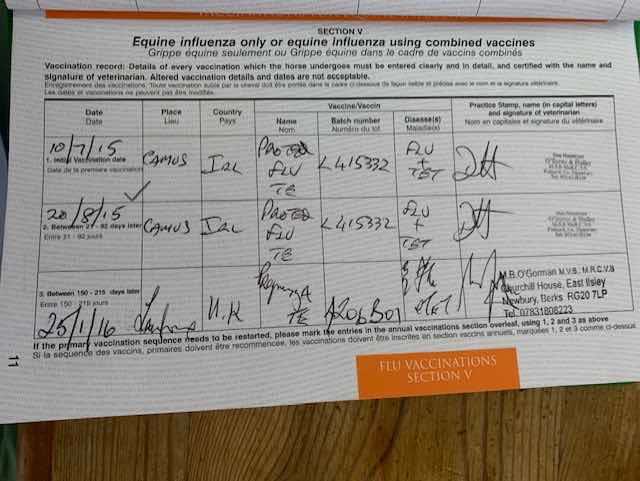 SECTION V
Equine influenza only or equine influenza using combined vaccines
Grippe équine seulement ou Grippe équine dans le cadre de vaccins combinés
Vaccination record: Details of every vaccination which the horse undergoes must be entered clearly and in detail, and certified with the name and
signature of veterinarian. Altered vaccination details and dates are not acceptable.
Enregistrement des vaccinations: Toute vaccination subie par le cheval doit être portée dans le cadre ci-dessous de façon lisible et précise avec le nom et la signature vétérinaire.
Les dates et vaccinations ne peuvent pas être modifiés.
Date
Date
Place
Lieu
Country
Pays
Vaccine/Vaccin
Name
Nom
Batch number
Numéro du lot
Disease(s)
Maladie(s)
Practice Stamp, name (in capital letters)
and signature of veterinarian
Nom en capitales et signature du vétérinaire
10/7/15
1. Initial Vaccination date
Date de la premiere vaccination
CAMUS
IRL
FLU
TE
L415332
FLU
+
TET
20/8/15
2. Between 21 - 92 days later
Entre 21 - 92 jours
CAMUS
IRL
FLU
TE
L415332
FLU
+
TET
3. Between 150 - 215 days later
Entre 150 - 215 jours
25/1/16
U.K
TE
A206B01
M.B.O'Gorman M.V.B. M.R.C.V.S
Churchill House, East Ilsley
Newbury, Berks RG20 7LP
Tel: 07831808223
If the primary vaccination sequence needs to be restarted, please mark the entries in the annual vaccinations section overleaf, using 1, 2 and 3 as above
Si la sequence des vaccins, primaires doivent être recommencée, les vaccinations doivent être inscrites en section vaccins annuels, marquées 1, 2 et 3 comme ci-dessous
11
FLU VACCINATIONS
SECTION V